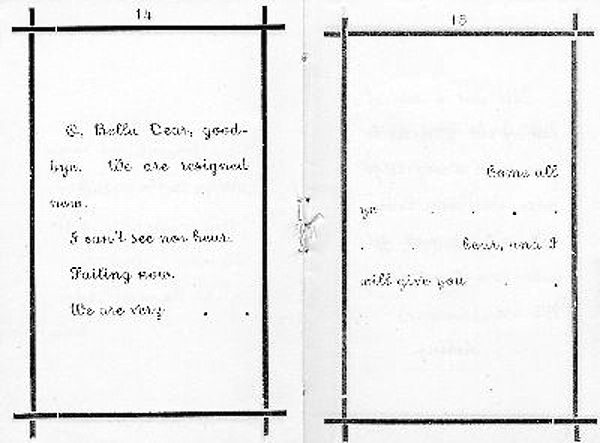 14
O, Bella Dear, good-
bye. We are resigned
now.
I can't see nor hear.
Failing now.
We are very . .
15
Come all
ye . . . .
. . hear, and I
will give you . .